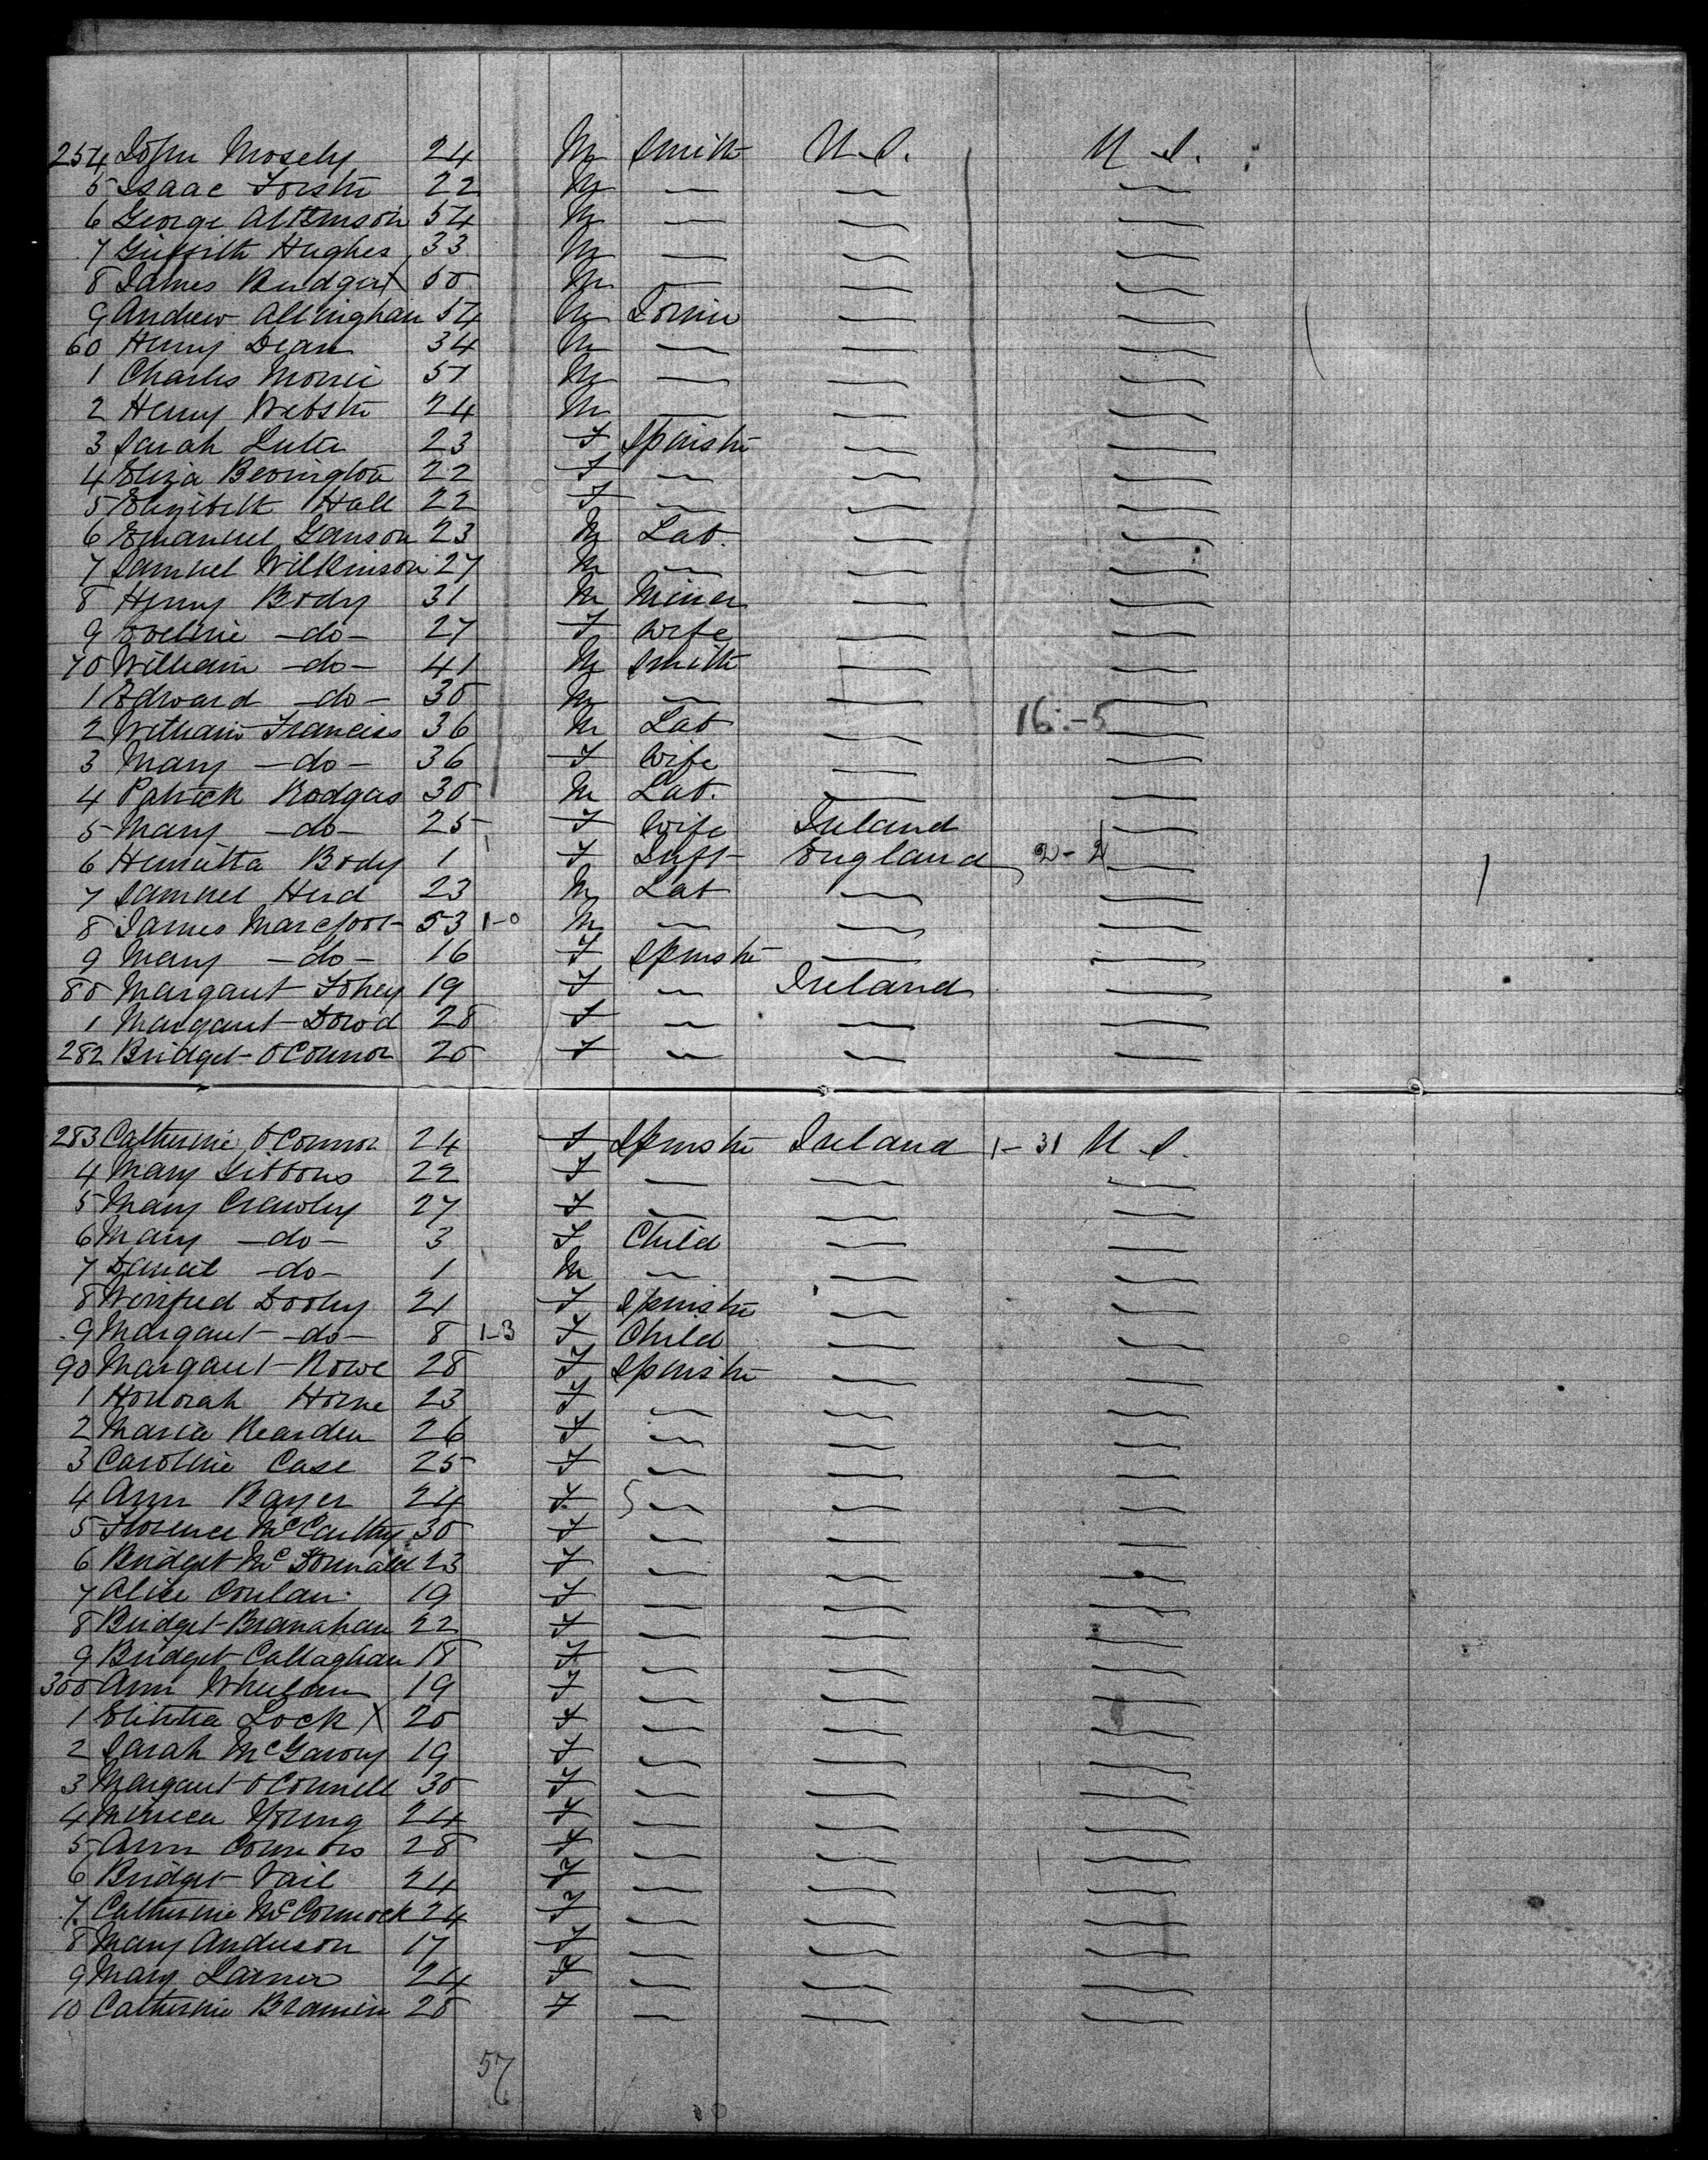 254 John Mosely 24 M Smith U.S. U.S.
5 Isaac Forster 22 M — — —
6 George Atkinson 54 M — — —
7 Griffith Hughes 33 M — — —
8 James 50 M — — —
9 Andrew Allingham 54 M — —
60 Henry Dean 34 M — — —
1 Charles Morris 51 M — — —
2 Henry Webster 24 M — — —
3 Sarah 23 F Spinster — —
4 Eliza Bevington 22 F — — —
5 Elizabeth Hall 22 F — — —
6 Emanuel Ganson 23 M Lab. — —
7 Samuel Wilkinson 27 M — — —
8 Henry Body 31 M Miner — —
9 -do- 27 F Wife — —
70 William -do- 41 M Smith — —
1 Edward -do- 30 M — — —
2 William Francis 36 M Lab — 16:-5 —
3 Mary -do- 36 F Wife — —
4 Patrick Rodgers 30 M Lab. — —
5 Mary -do- 25 F Wife Ireland —
6 Henrietta Body 1 F Inft England —
7 Samuel Herd 23 M Lab — —
8 James 53 1-0 M — — —
9 Mary -do- 16 F Spinster — —
80 Margaret Fohey 19 F — Ireland —
1 Margaret Dowd 28 F — — —
282 Bridget OConnor 20 F — — —
283 Catherine OConnor 24 F Spinster Ireland 1-31 U.S.
4 Mary Gibbons 22 F — — —
5 Mary Crawley 27 F — — —
6 Mary -do- 3 F Child — —
7 Daniel -do- 1 M — — —
8 Winifred Dooley 21 F Spinster — —
9 Margaret -do- 8 1-3 F Child — —
90 Margaret Rowe 28 F Spinster — —
1 Honorah Horne 23 F — — —
2 Maria Rearden 26 F — — —
3 Caroline Case 25 F — — —
4 Ann Bayer 24 F — — —
5 Florence McCarthy 30 F — — —
6 Bridget McDonnald 23 F — — —
7 Alice Conlan 19 F — — —
8 Bridget Branahan 22 F — — —
9 Bridget Callaghan 18 F — — —
300 Ann Whelan 19 F — — —
1 Lock X 20 F — — —
2 Sarah McGarvey 19 F — — —
3 Margaret OConnell 30 F — — —
4 Young 24 F — — —
5 Ann Connors 28 F — — —
6 Bridget Vail 24 F — — —
7 Catherine McCormock 24 F — — —
8 Mary Anderson 17 F — — —
9 Mary Larner 24 F — — —
10 Catherine 28 F — — —
57